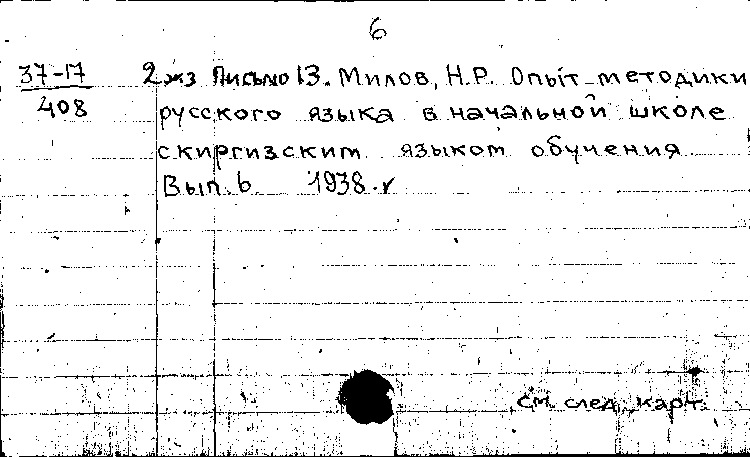 6
37-17 2 экз Письмо 13. Милов, Н.Р. Опыт методики
408 русского языка в начальной школе
скиргизским языком обучения
Вып. 6 1938.г
см. след. карт.